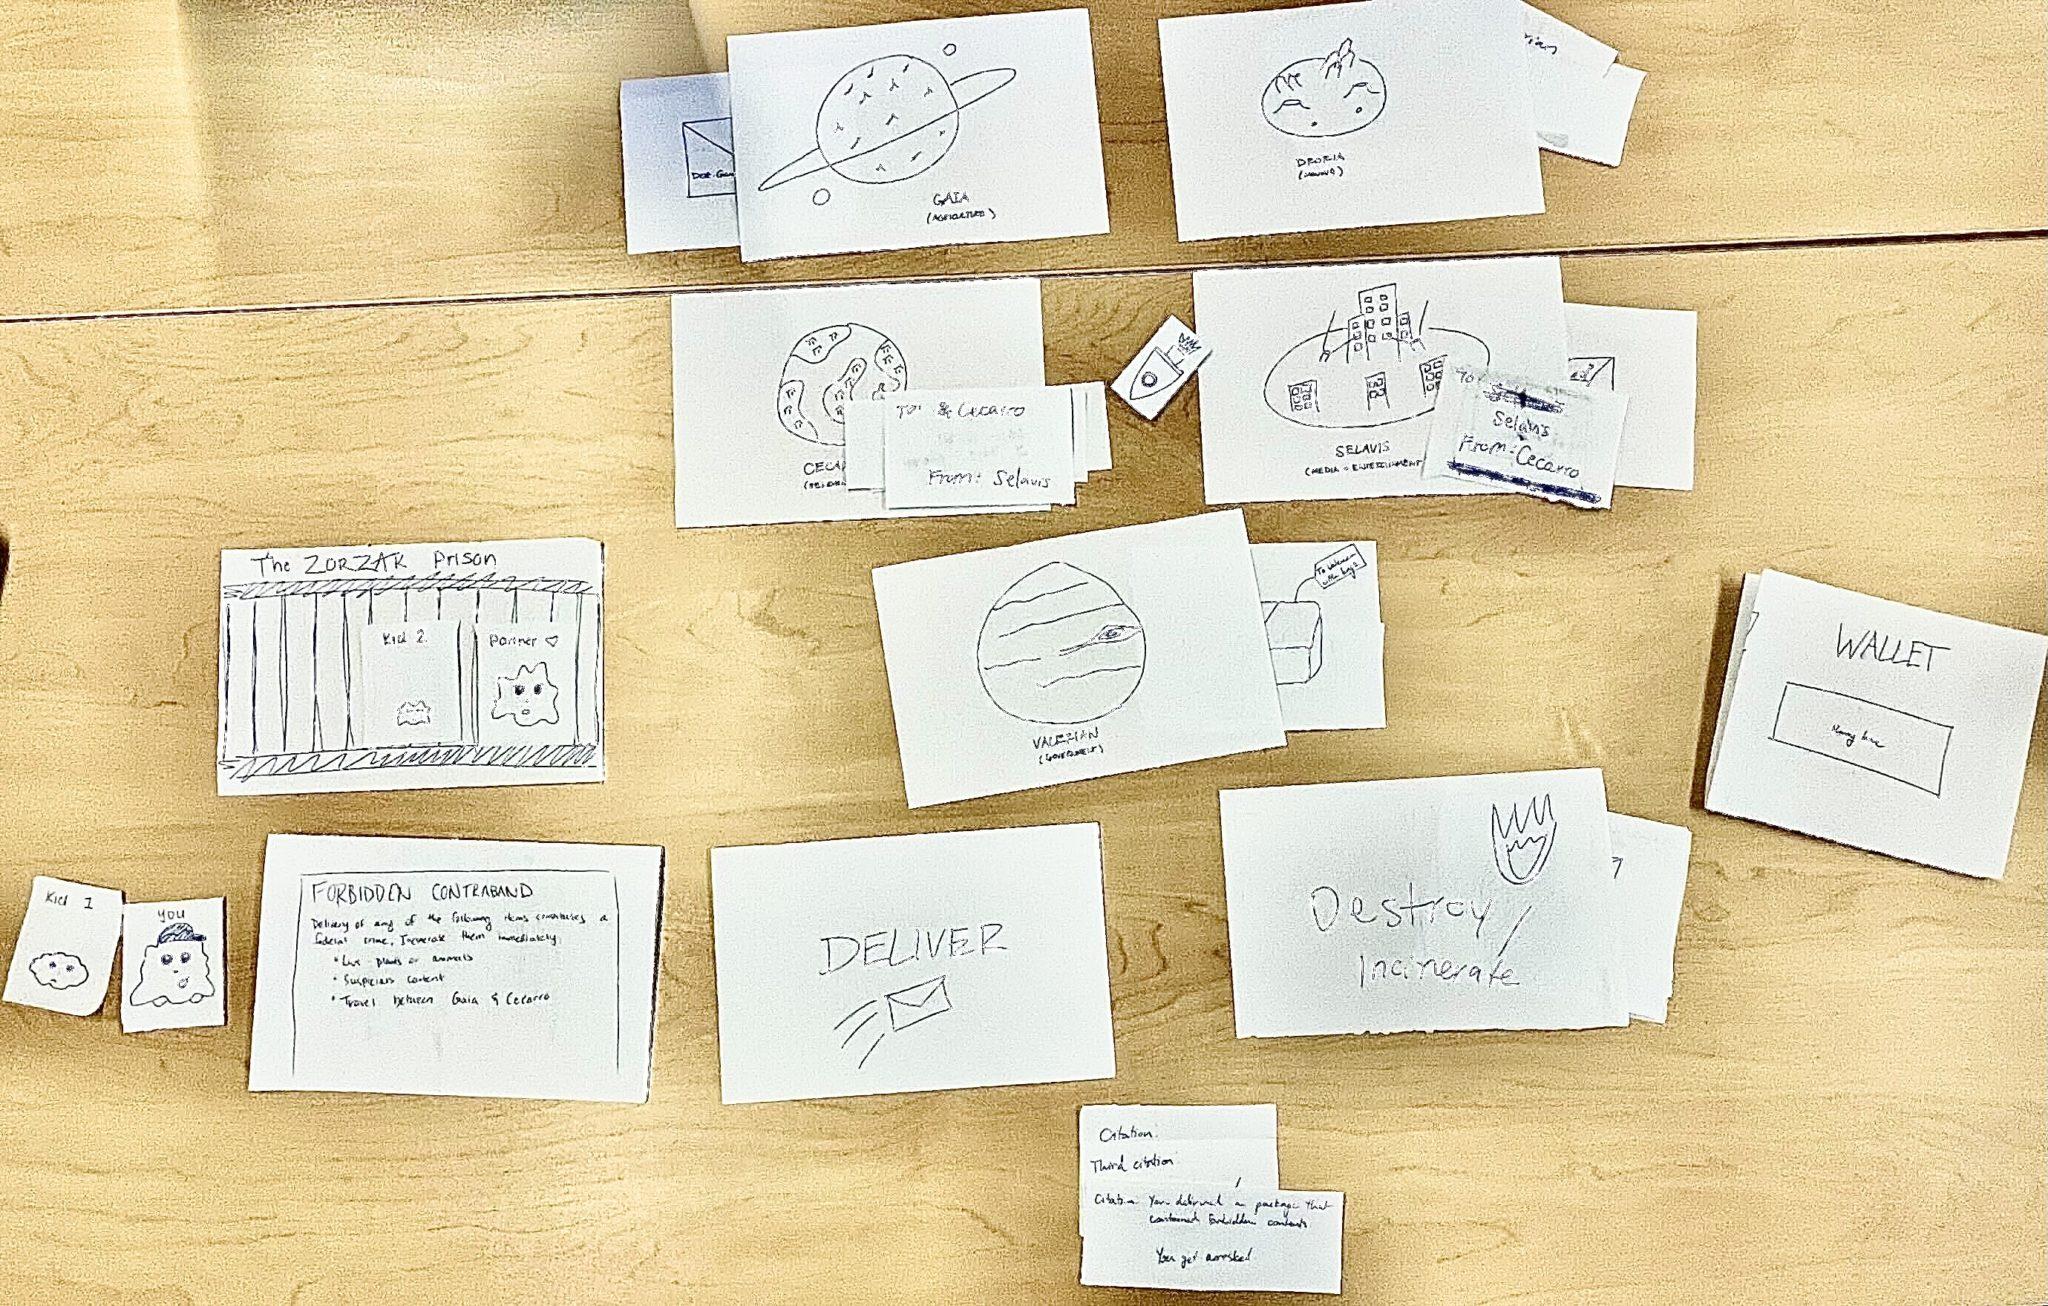 GAIA
(AGRICULTURE)
DRORIA
(MINING)
To: Cecarro
From: Selavis
SELAVIS
(MEDIA + ENTERTAINMENT
To:
Selavis
From: Cecarro
The ZORZAK Prison
Kid 2
partner ♡
VALERIAN
(GOVERNMENT)
WALLET
Money here
Kid 1
you
FORBIDDEN CONTRABAND
Delivery of any of the following items constitutes a
federal crime. Incinerate them immediately:
• Live plants or animals
• Suspicious content
• Travel between Gaia & Cecarro
DELIVER
Destroy/
Incinerate
Citation:
Third citation:
Citation: You delivered a package that
contained forbidden contents
You get arrested